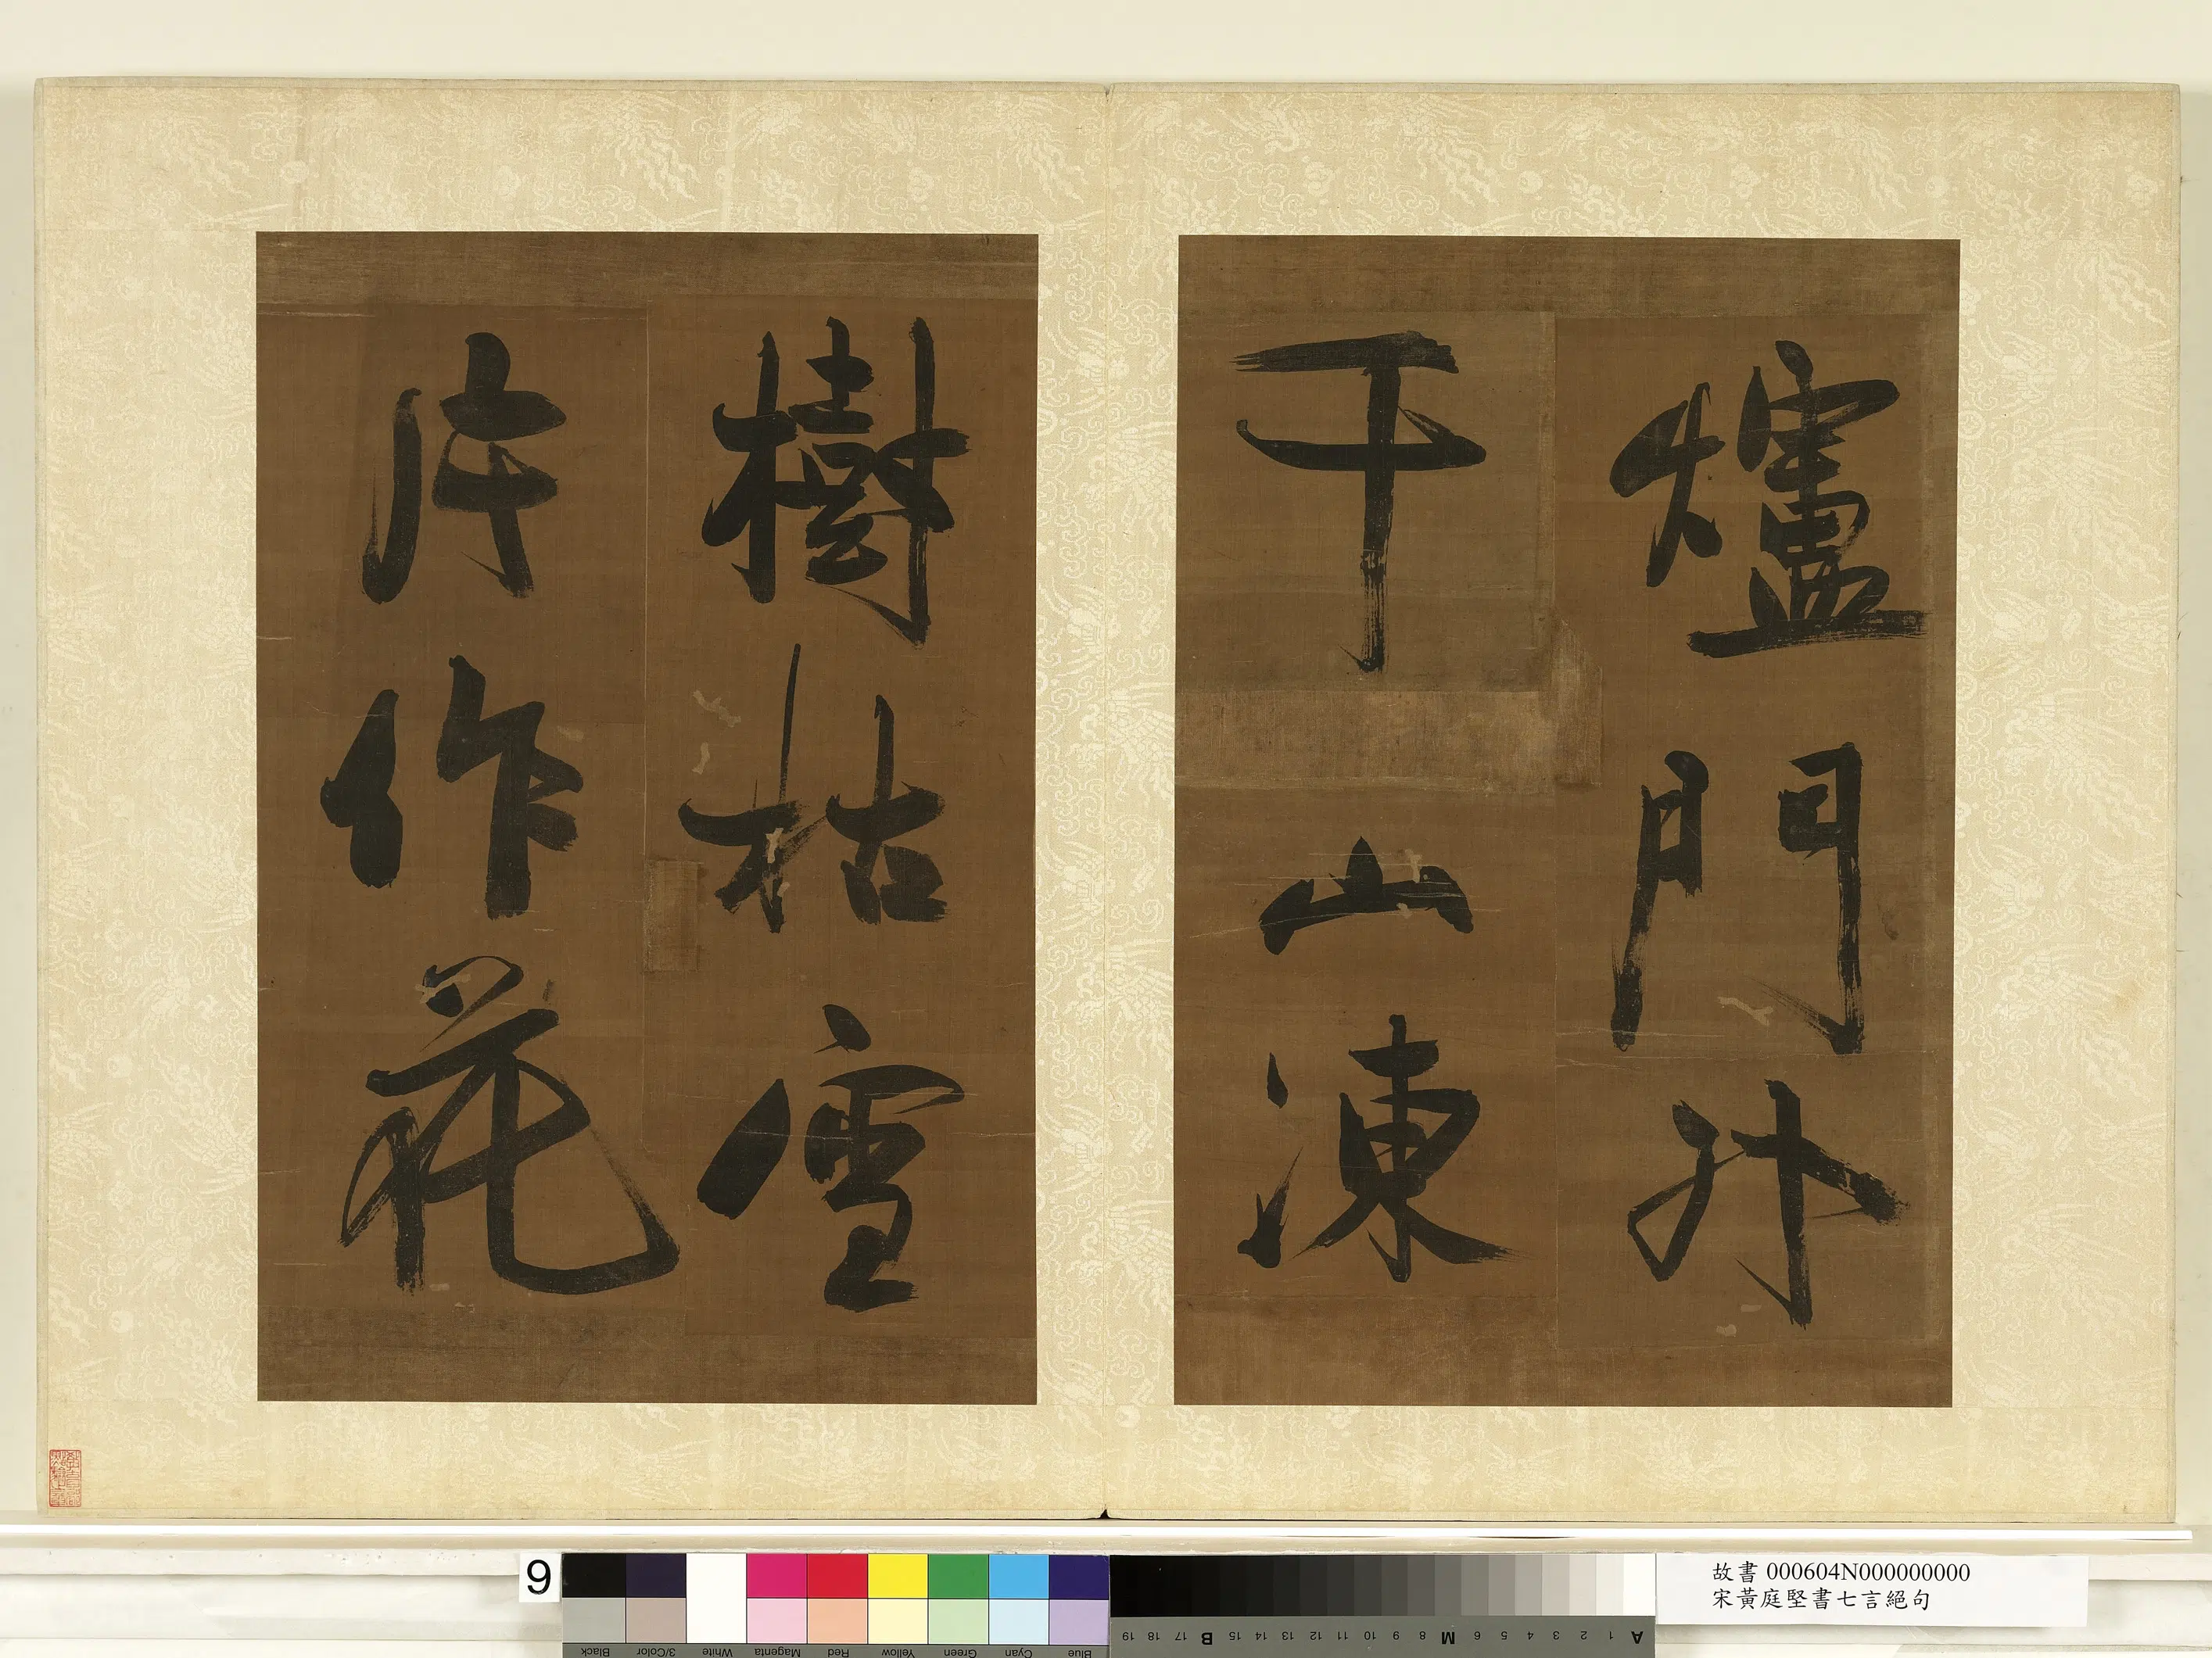 爐門外
千山凍
樹枯雪
片作花
9
故書 000604N000000000
宋黃庭堅書七言絕句
Blue Cyan Green Yellow Red Magenta White 3/Color Black
A 1 2 3 4 5 6 M 8 9 10 11 12 13 14 15 B 17 18 19